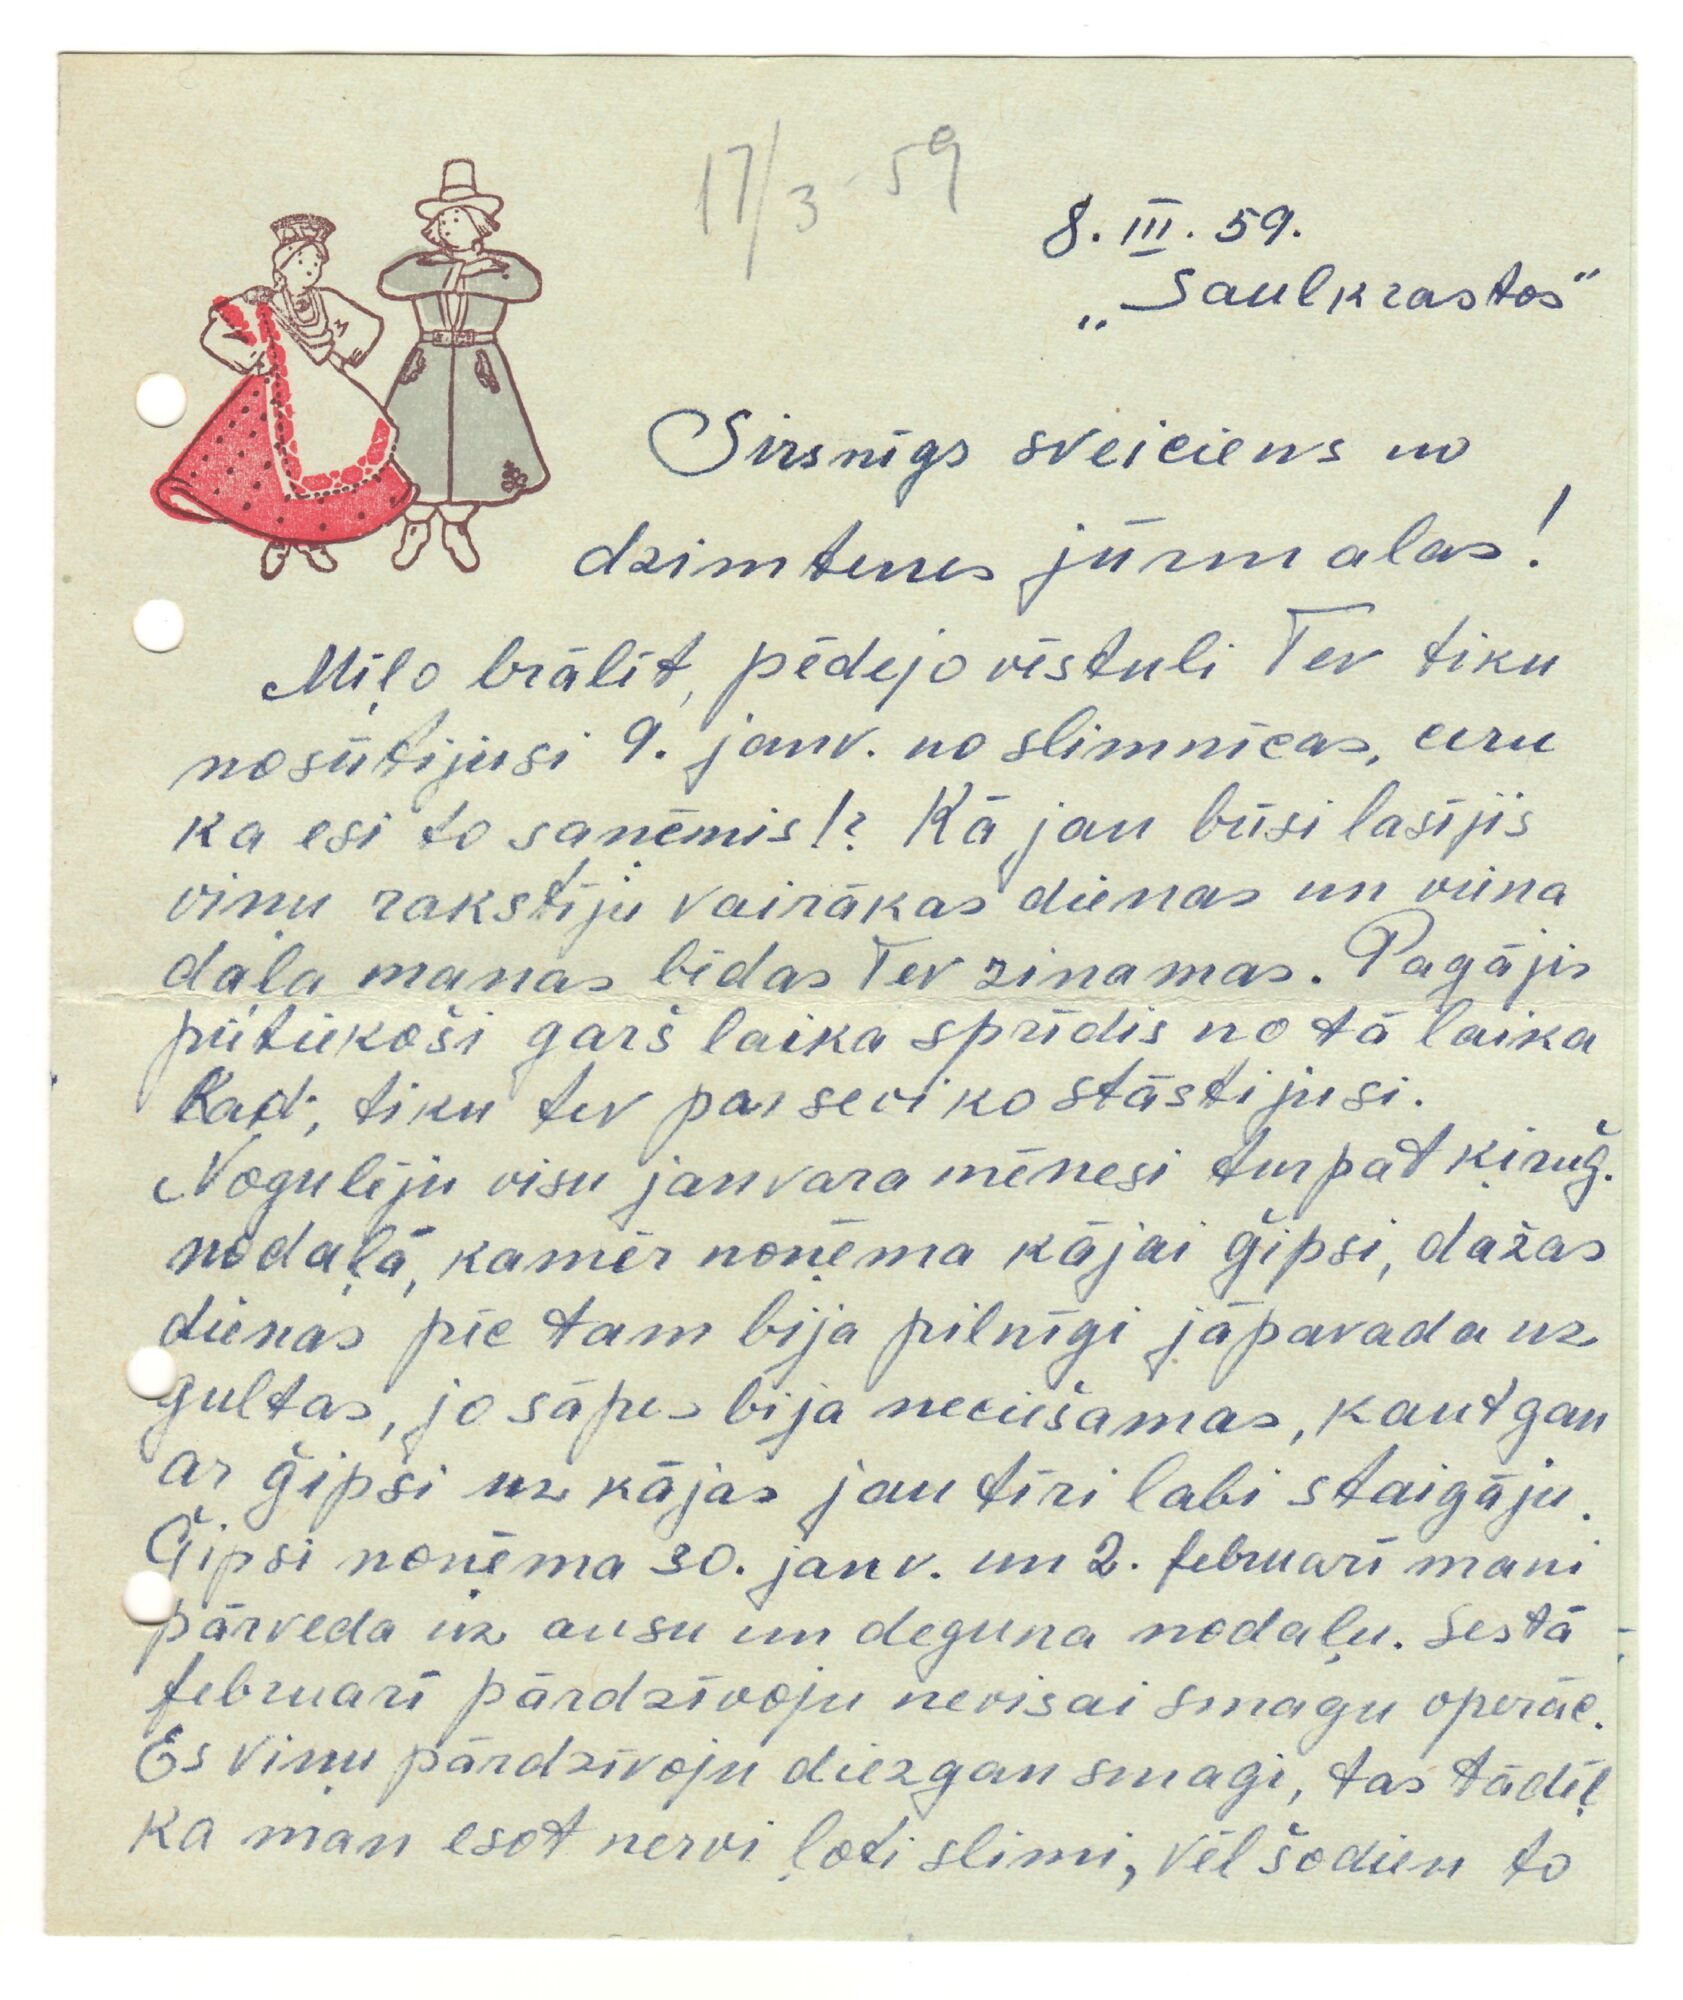 17/3-59
8. III. 59.
„Saulkrastos"
Sirsnīgs sveiciens no
dzimtenes jūrmalas!
Mīļo brālīt, pēdejo vēstuli Tev tiku
nosūtijusi 9. janv. no slimnīcas, ceru
ka esi to saņēmis!? Kā jau būsi lasījis
viņu rakstīju vairākas dienas un viena
daļa manas bēdas Tev zinamas. Pagājis
pietiekoši garš laika sprīdis no tā laika
kad, tiku tev par sevi ko stāstijusi.
Nogulēju visu janvara mēnesi turpat ķirurģ.
nodaļā, kamēr noņēma kājai ģipsi, dažas
dienas pēc tam bija pilnīgi jāpavada uz
gultas, jo sāpes bija neciešamas, kaut gan
ar ģipsi uz kājas jau tīri labi staigāju.
Ģipsi noņēma 30. janv. un 2. februarī mani
pārveda uz ausu un deguna nodaļu. Sestā
februarī pārdzīvoju nevisai smagu operāc.
Es viņu pārdzīvoju diezgan smagi, tas tādēļ
ka man esot nervi ļoti slimi, vēl šodien to